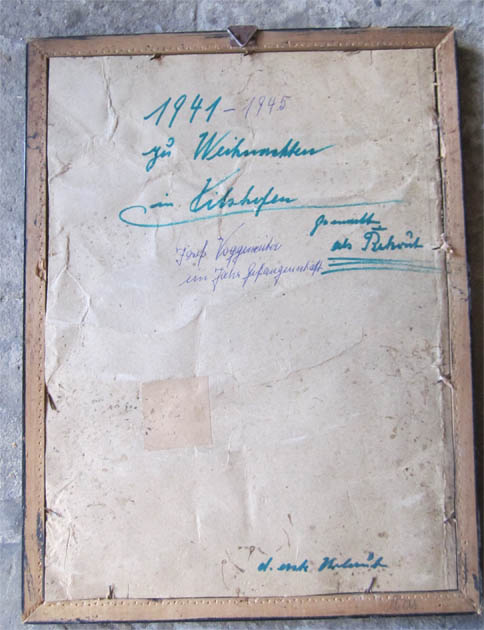 1941 - 1945
zu Weihnachten
in Vilshofen
gemalt
als Rekrut
Josef
ein Jahr Gefangenschaft
d. erste